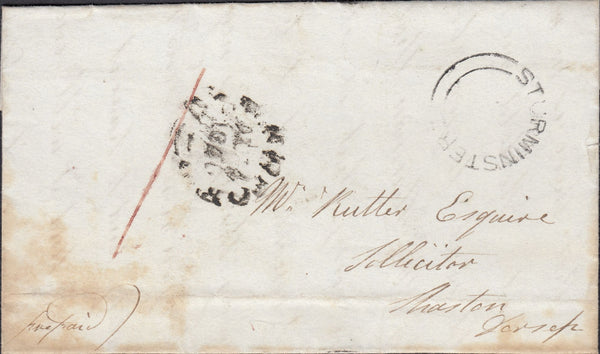 STURMINSTER
Mr. Rutter Esquire
Sollicitor
Shaston
Dorset
Prepaid